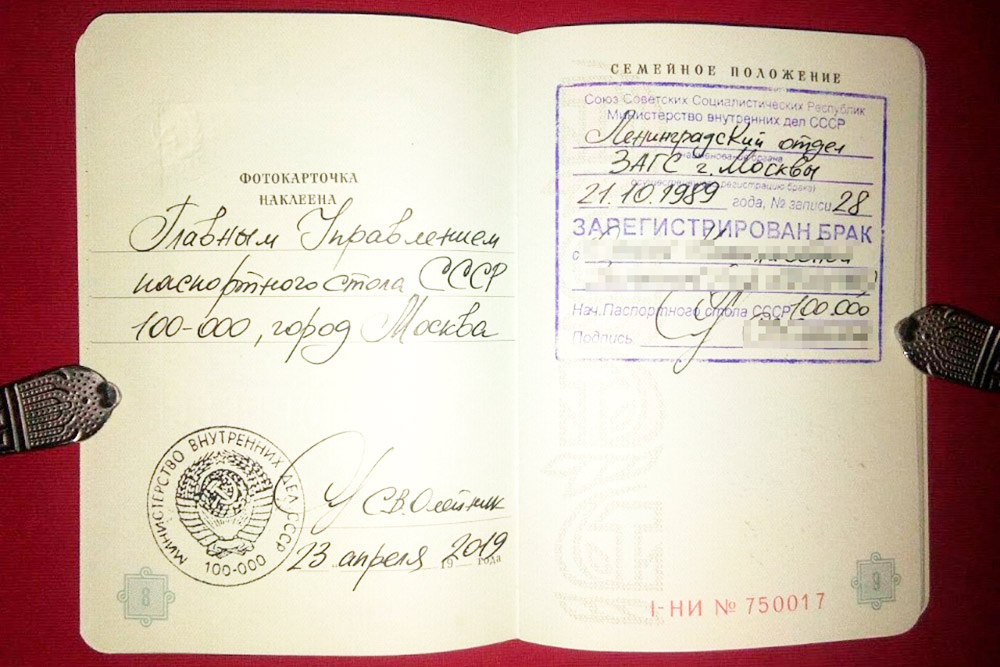 ФОТОКАРТОЧКА
НАКЛЕЕНА
Главным Управлением
паспортного стола СССР
100-000, город Москва
МИНИСТЕРСТВО ВНУТРЕННИХ ДЕЛ СССР
100-000
С.В. Олейник
23 апреля 2019
19 года
8
СЕМЕЙНОЕ ПОЛОЖЕНИЕ
Союз Советских Социалистических Республик
Министерство внутренних дел СССР
Ленинградский отдел
ЗАГС г. Москвы
21.10.1989 года, № записи 28
ЗАРЕГИСТРИРОВАН БРАК
с
Нач. Паспортного стола СССР 100.000
Подпись:
9
I-НИ № 750017